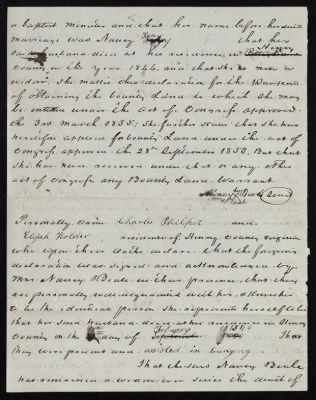 a baptist minister and that her name before her said
marriage was Nancy that her
said husband died at his residence in Henry
County in the year 1844, and that she is now a
widow; she makes this declaration for the purpose
of obtaining the bounty land to which she may
be entitled under the act of Congress approved
the 3rd March 1855; she further states that she has
heretofore applied for bounty Land under the act of
Congress approved the 28th September 1850. But that
she has never received under that or any other
act of Congress any Bounty Land Warrant
Nancy Beale Seal
Personally came Charles Philpot and
Elijah Holder residents of Henry County virginia
who upon their oaths declare that the foregoing
declaration was signed and acknowledged by
Mrs Nancy Beale in their presence, that they
are personally well acquainted with her, & know her
to be the identical person she represents herself to be
that her said husband died at his residence in Henry
County on the day of February That
they were present and assisted in burying
That the said Nancy Beale
has remained a widow ever since the death of